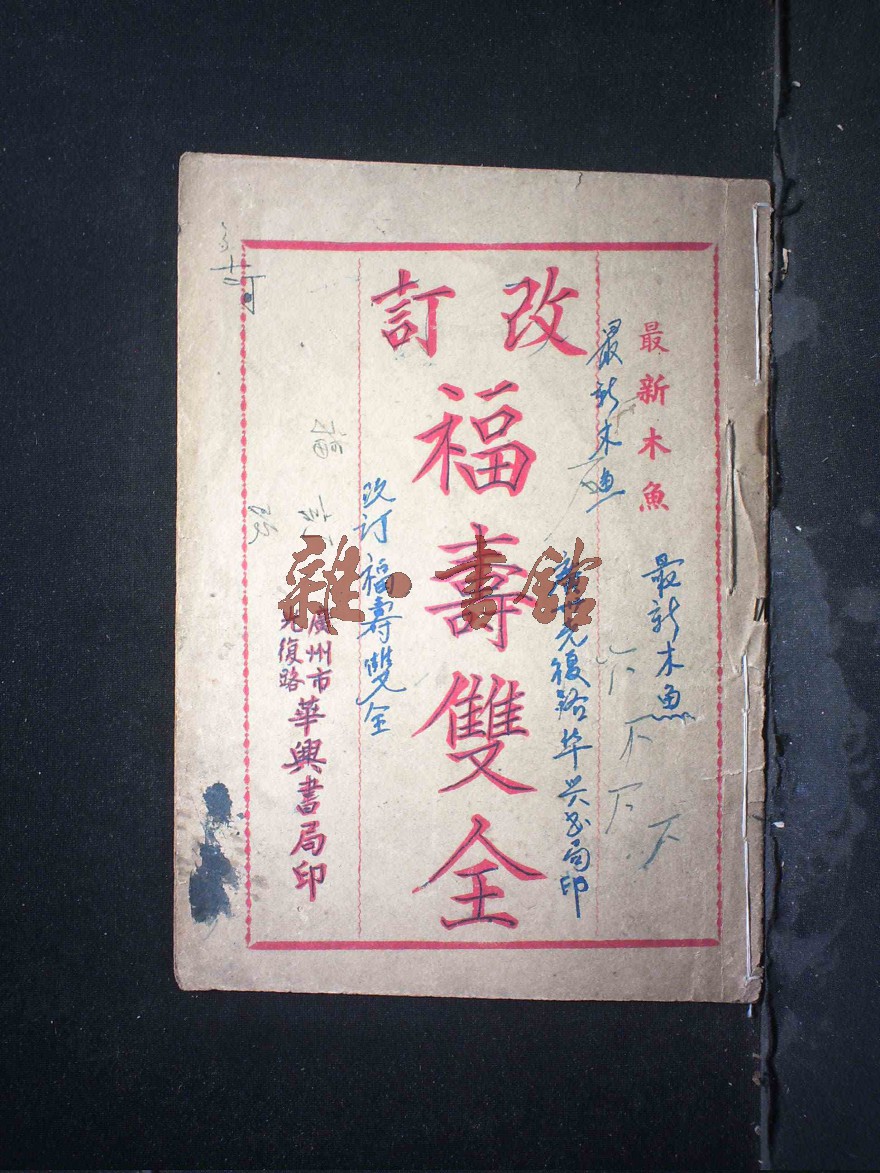 最新木魚
最新木魚
最新木魚
改訂
福壽雙全
光復路华兴书局印
改订福壽雙全
廣州市
光復路
華興書局印
雜·書館
福